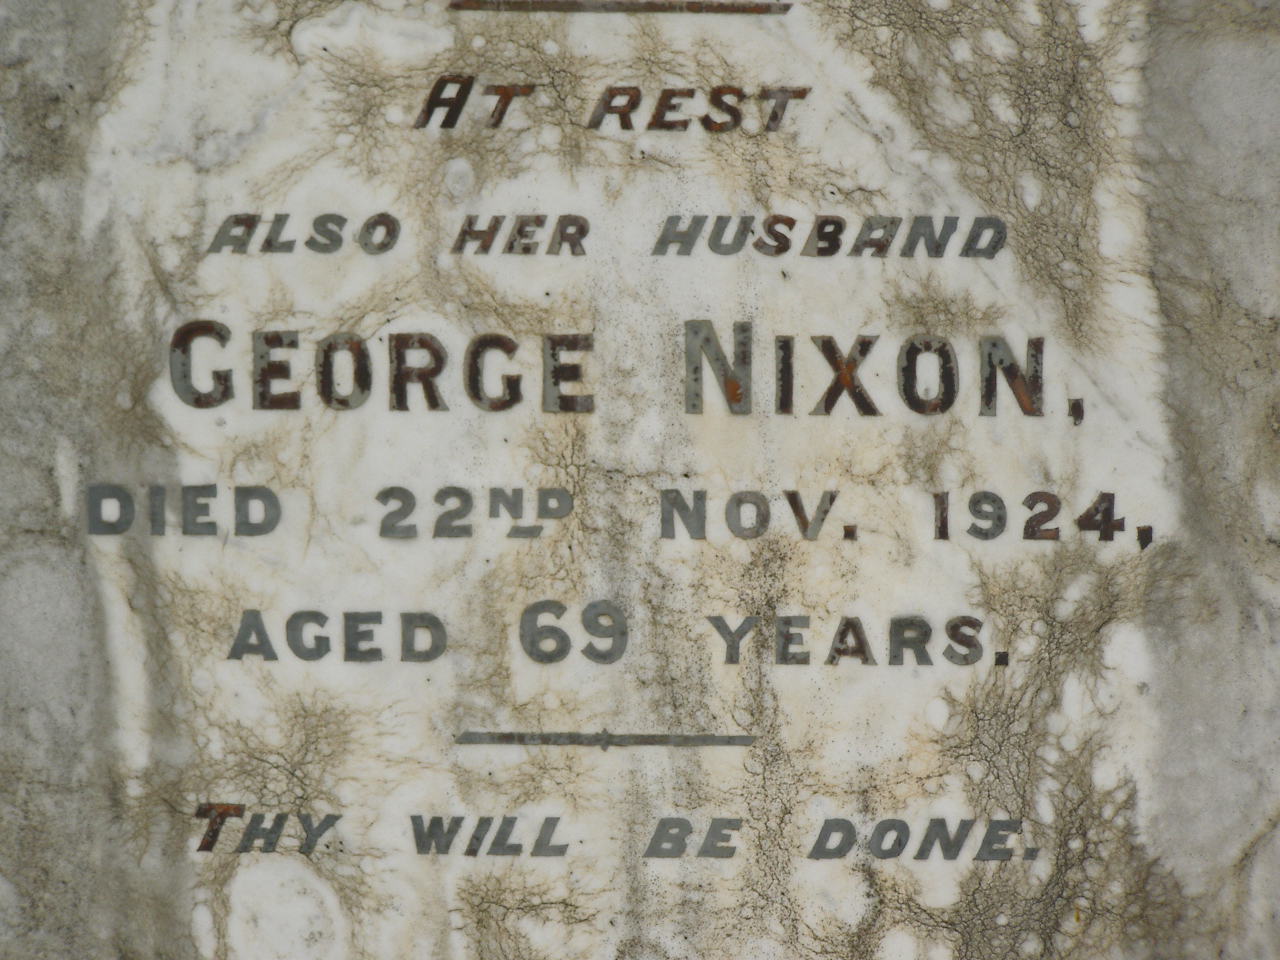 AT REST
ALSO HER HUSBAND
GEORGE NIXON,
DIED 22ND NOV. 1924,
AGED 69 YEARS.
THY WILL BE DONE.